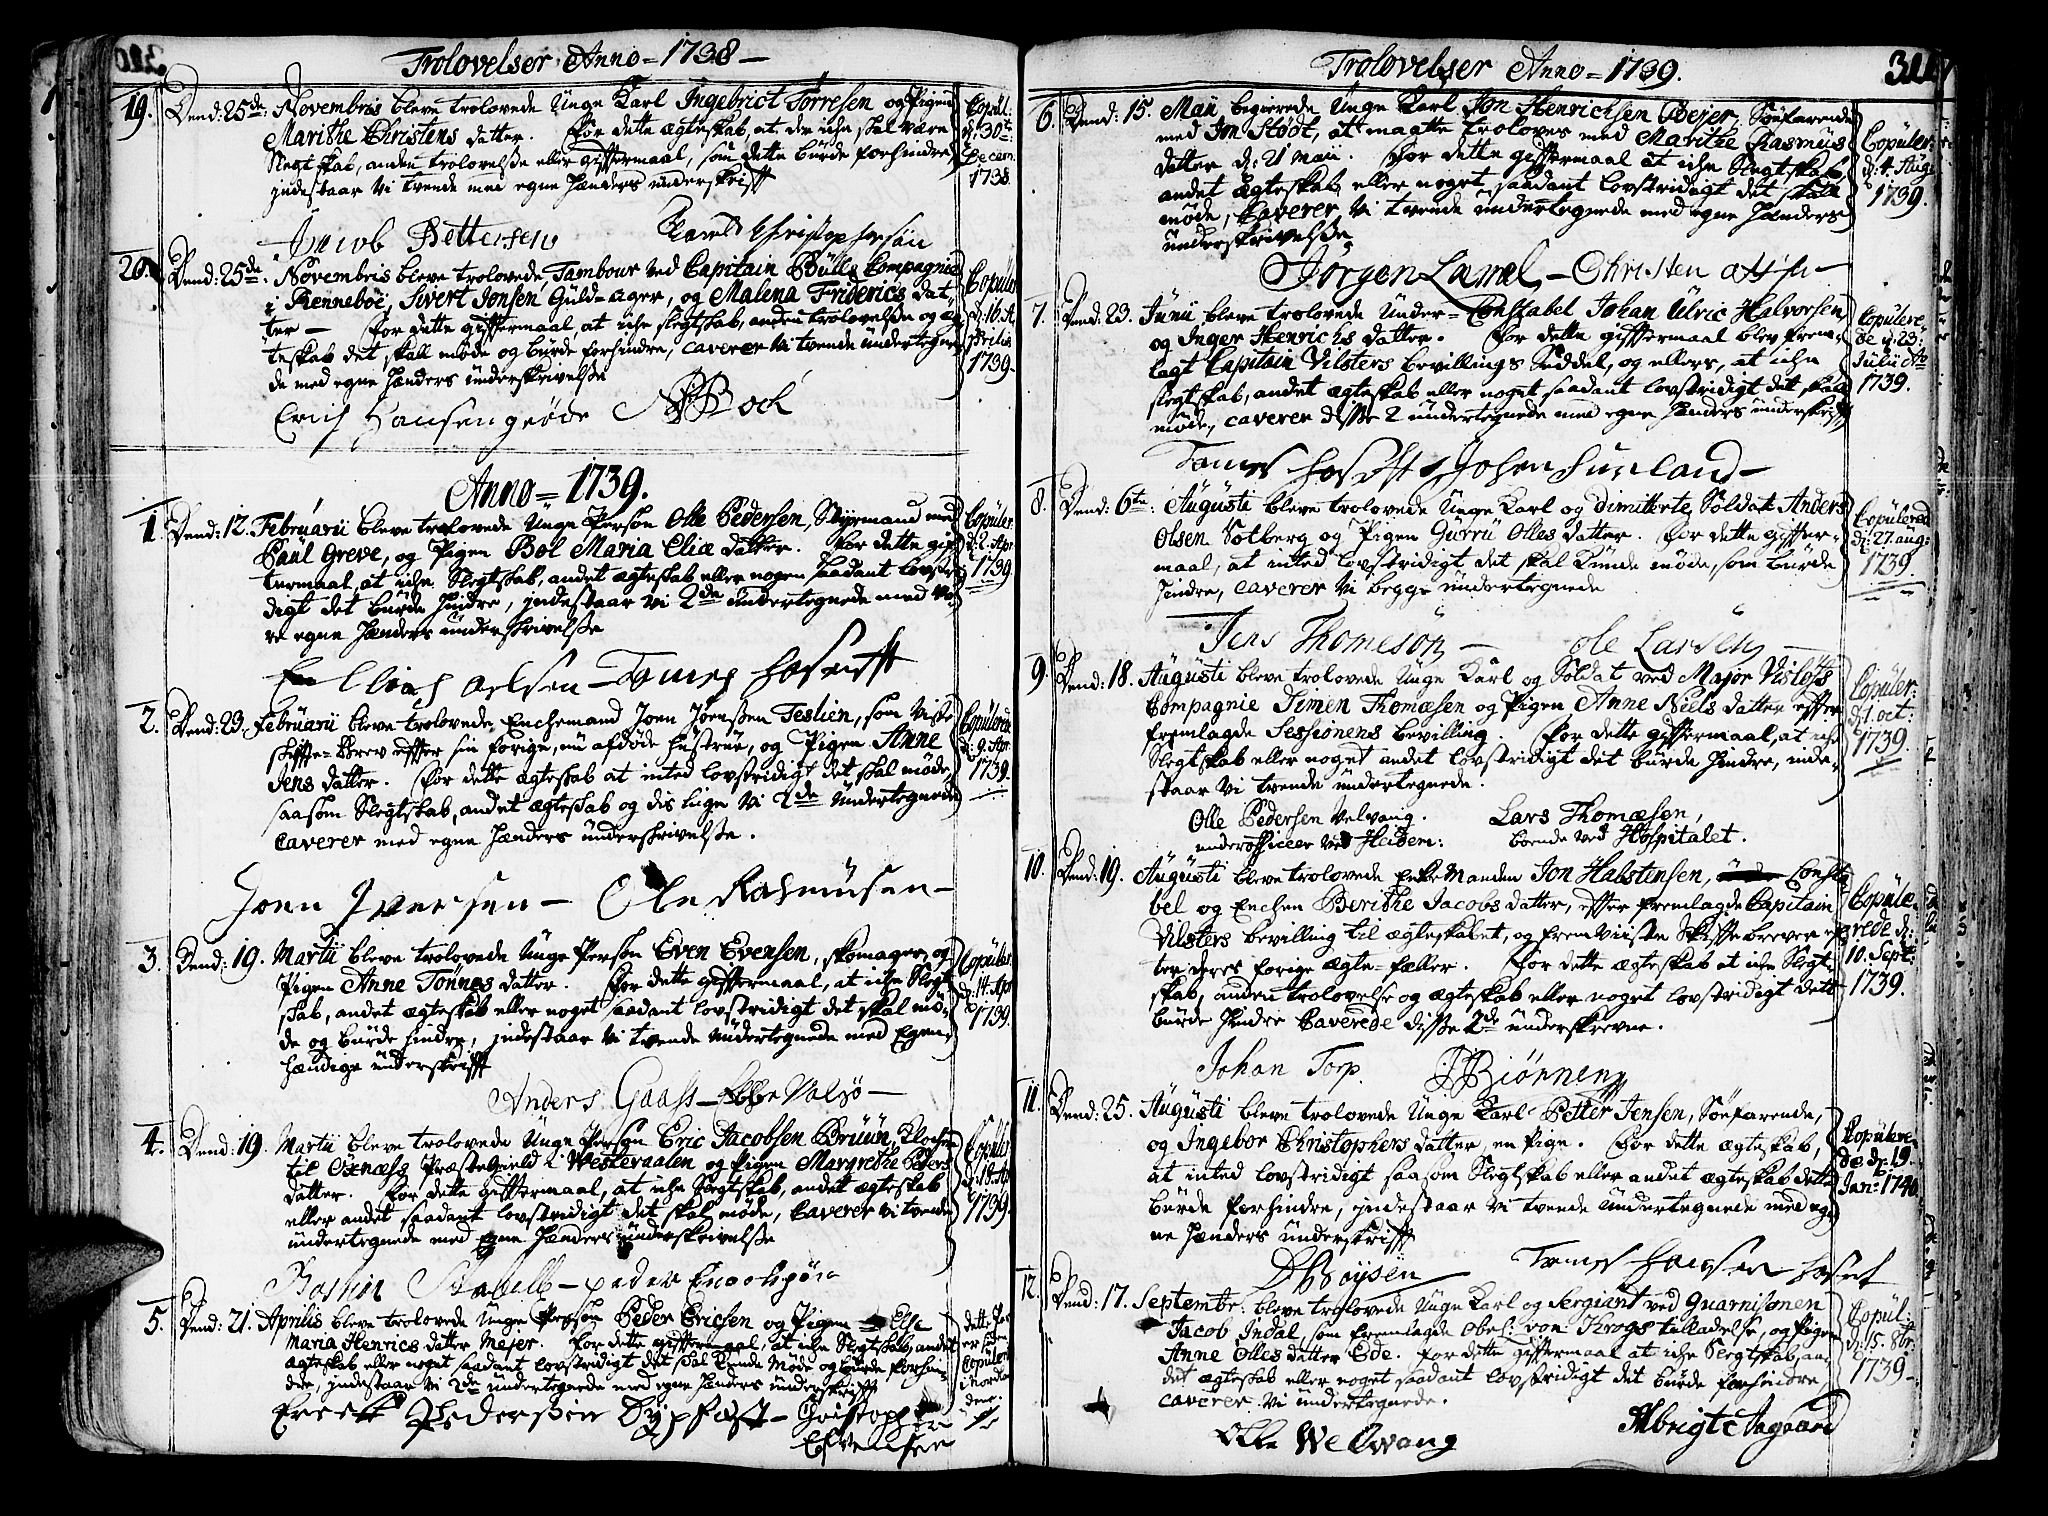 Trolovelser Anno = 1738 —
19. Dend: 25de Novembris bleve trolovede Unge Karl Ingebrict Torresen og Pigen
Marithe Christens datter. For dette ægteskab, at der iche skal være
Slegtskab, anden trolovelse eller giftermaal, som dette burde forhindre
indestaar vi tvende med egne hænders underskrifft
Copul:
d: 30te
Decem:
1738.
Jacob Pettersen Christophersøn
20. Dend: 25de Novembris bleve trolovede Tambour ved Capitain Bülls Compagnie
i Rennebøe, Sivert Jonsen Guld-ager, og Malena Friderics dat,
ter — For dette giftermaal, at iche slegtskab, anden trolovelse og æg,
teskab det skall møde og burde forhindre, caverer vi tvende undertegne,
de med egne hænders underskrivelse
Copuler
d: 16. A,
prilis
1739.
Erich Hansen grøde Bock
Anno = 1739.
1. Dend: 12. Februarii bleve trolovede Unge Person Olle Pedersen, Styrmand med
Paul Greve, og Pigen Bol Maria Eliæ datter. For dette gif,
termaal, at iche Slegtskab, andet ægteskab eller nogen saadant lovstri,
digt det burde hindre, indestaar vi 2de undertegnede med vo,
re egne hænders underskrivelse
Copuler
d: 2. Apr
1739.
Elias Oelsen — Tomes Hosenfft
2. Dend: 23. Februarii bleve trolovede Enchemand Joen Joensen Teslien, som viste
skifte-Brev effter sin forige, nu afdøde hustrue, og Pigen Anne
Jens datter. For dette ægteskab at inted lovstridigt det skal møde,
saasom Slegtskab, andet ægteskab og dislige vi 2de undertegnede
caverer med egne hænders underskrivelse.
Copulered
d: 9. Apr.
1739.
Joen Iversen — Ole Rasmusen —
3. Dend: 19. Martii bleve trolovede Unge Person Even Evensen, skomager, og
Pigen Anne Tønnes datter. For dette giftermaal, at iche Slegt
skab, andet ægteskab eller noget saadant lovstridigt det skal mø,
de og burde hindre, indestaar vi tvende undertegnede med Egen,
hændige underskrifft
Copuler.
d: 14. Apr
1739.
Anders Gaass — Ebbe Valsø —
4. Dend: 19. Martii bleve trolovede Unge Person Eric Jacobsen Bruun, Klocker
til Øxnæss Præstegield i Westeraalen og Pigen Margrethe Peders
datter. For dette giftermaal, at iche slegtskab, andet ægteskab
eller andet saadant lovstridigt det skal møde, Caverer vi tvende
undertegnede med Egne hænders underskrivelse
Copuler
d: 18. Ap
1739.
peder Enochsøn
5. Dend: 21. Aprilis bleve trolovede Unge Person Peder Ericsen og Pigen Else
Maria Henrics datter Mejer. For dette giftermaal, at iche Slegtskab, andet
ægteskab eller noget saadant lovstridigt det skal kunde møde og burde forhin,
dre, indestaar vi 2de undertegnede med egne hænders underskrifft
dette Par
er siden
Copulert
i Nordlan
dene.
Pedersen — Christopher
Estvensen
Trolovelser Anno = 1739.
311
6. Dend: 15. Maii begierede Unge Karl Jon Henrichsen Bejer, Søefarende
med Jon Stødt, at maatte troloves med Marithe Rasmus
datter d: 21 Maii. For dette giftermaal at iche Slegtskab,
andet ægteskab eller noget saadant lovstridigt det skall
møde, Caverer vi tvende undertegnede med egne hænders
underskrivelse
Copuler:
d: 4. Aug:
1739.
Jørgen Lamel — Christen
7. Dend: 23. Junii bleve trolovede Under-Constabel Johan Ulric Halvorsen,
og Inger Henrichs datter. For dette giftermaal blev frem,
lagt Capitain Vilsters bevillings Seddel, og ellers, at iche
slegtskab, andet ægteskab eller noget saadant lovstridigt det skall
møde, caverer disse 2 undertegnede med egne hænders underskrifft
Copulere
de d: 23:
Julii Ao
1739.
Tomes Hosefft Johan Hunland —
8. Dend: 6te: Augusti bleve trolovede Unge Karl og dimitterte Soldat Anders
Olsen Solberg og Pigen Gurru Olles datter. For dette gifter,
maal, at inted lovstridigt det skal kunde møde, som burde
hindre, caverer vi begge undertegnede
Copulered
d: 27. aug:
1739.
Jens Thomesøn — Ole Larsen —
9. Dend: 18. Augusti bleve trolovede Unge Karl og Soldat ved Major Visløfs
Compagnie Simen Thomæsen og Pigen Anne Niels datter effter
fremlagde Sessionens bevilling. For dette giftermaal, at iche
Slegtskab eller noget andet lovstridigt det burde hindre, inde,
staar vi tvende undertegnede.
Copuler:
d: 1. oct:
1739.
Olle Pedersen Velvang. Lars Thomæsen,
underofficeer ved Heiden: boende ved Hospitalet.
10. Dend: 19. Augusti bleve trolovede Enkemanden Jon Halstensen, Consta,
bel og Enchen Berithe Jacobs datter, effter fremlagde Capitain
Vilsters bevilling til ægteskabet, og fremviiste Skifftebrever ef,
ter deres forige ægte-fæller. For dette ægteskab at iche Slegt,
skab, anden trolovelse og ægteskab eller noget lovstridigt dette
burde hindre Caverede disse 2de underskrevne.
Copule,
rede d:
10. Sept:
1739.
Johan Torp. Biørneng
11. Dend: 25. Augusti bleve trolovede Unge Karl Petter Jensen, Søefarende,
og Ingebor Christophers datter, en Pige. For dette ægteskab,
at inted lovstridigt saasom Slegtskab eller andet ægteskab dette
burde forhindre, indestaar vi tvende undertegnede med eg,
ne hænders underskrifft
Copulere
de d: 19.
Jan: 1740.
DBoysen Tomes Hansen Hosent
12. Dend: 17. Septembr: bleve trolovede Unge Karl og Sergiant ved Guarnisonen
Jacob Indal, som fremlagde Obel: von Krogs tilladelse, og Pigen
Anne Olles datter Ede. For dette giftermaal at iche Slegtskab, an,
det ægteskab eller noget saadant lovstridigt det burde forhindre,
caverer vi undertegnede.
Copul:
d: 15. 8br.
1739.
Olle Welwang Albrigt Aagaard